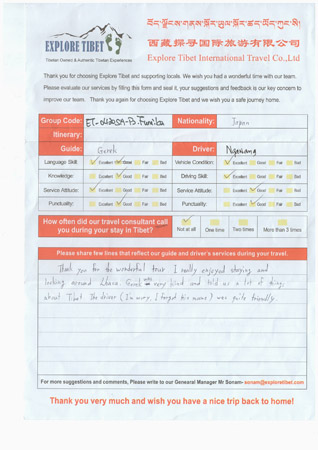 EXPLORE TIBET
Tibetan Owned & Authentic Tibetan Experiences
西藏探寻国际旅游有限公司
Explore Tibet International Travel Co.,Ltd
Thank you for choosing Explore Tibet and supporting locals. We wish you had a wonderful time with our team.
Please evaluate our services by filling this form and seal it, your suggestions and feedback is our key concern to
improve our team. Thank you again for choosing Explore Tibet and we wish you a safe journey home.
Group Code: Nationality: Japan
Itinerary:
Guide: Gerek Driver:
Language Skill: Excellent Good Fair Bad Vehicle Condition: Excellent Good Fair Bad
Knowledge: Excellent Good Fair Bad Driving Skill: Excellent Good Fair Bad
Service Attitude: Excellent Good Fair Bad Service Attitude: Excellent Good Fair Bad
Punctuality: Excellent Good Fair Bad Punctuality: Excellent Good Fair Bad
How often did our travel consultant call
you during your stay in Tibet? Not at all One time Two times More than 3 times
Please share few lines that reflect our guide and driver's services during your travel.
Thank you for the wonderful tour. I really enjoyed staying and
looking around Lhasa. Gerek was very kind and told us a lot of things
about Tibet. The driver (I'm sorry, I forgot his name) was quite friendly.
For more suggestions and comments, Please write to our Genearal Manager Mr Sonam- sonam@exploretibet.com
Thank you very much and wish you have a nice trip back to home!